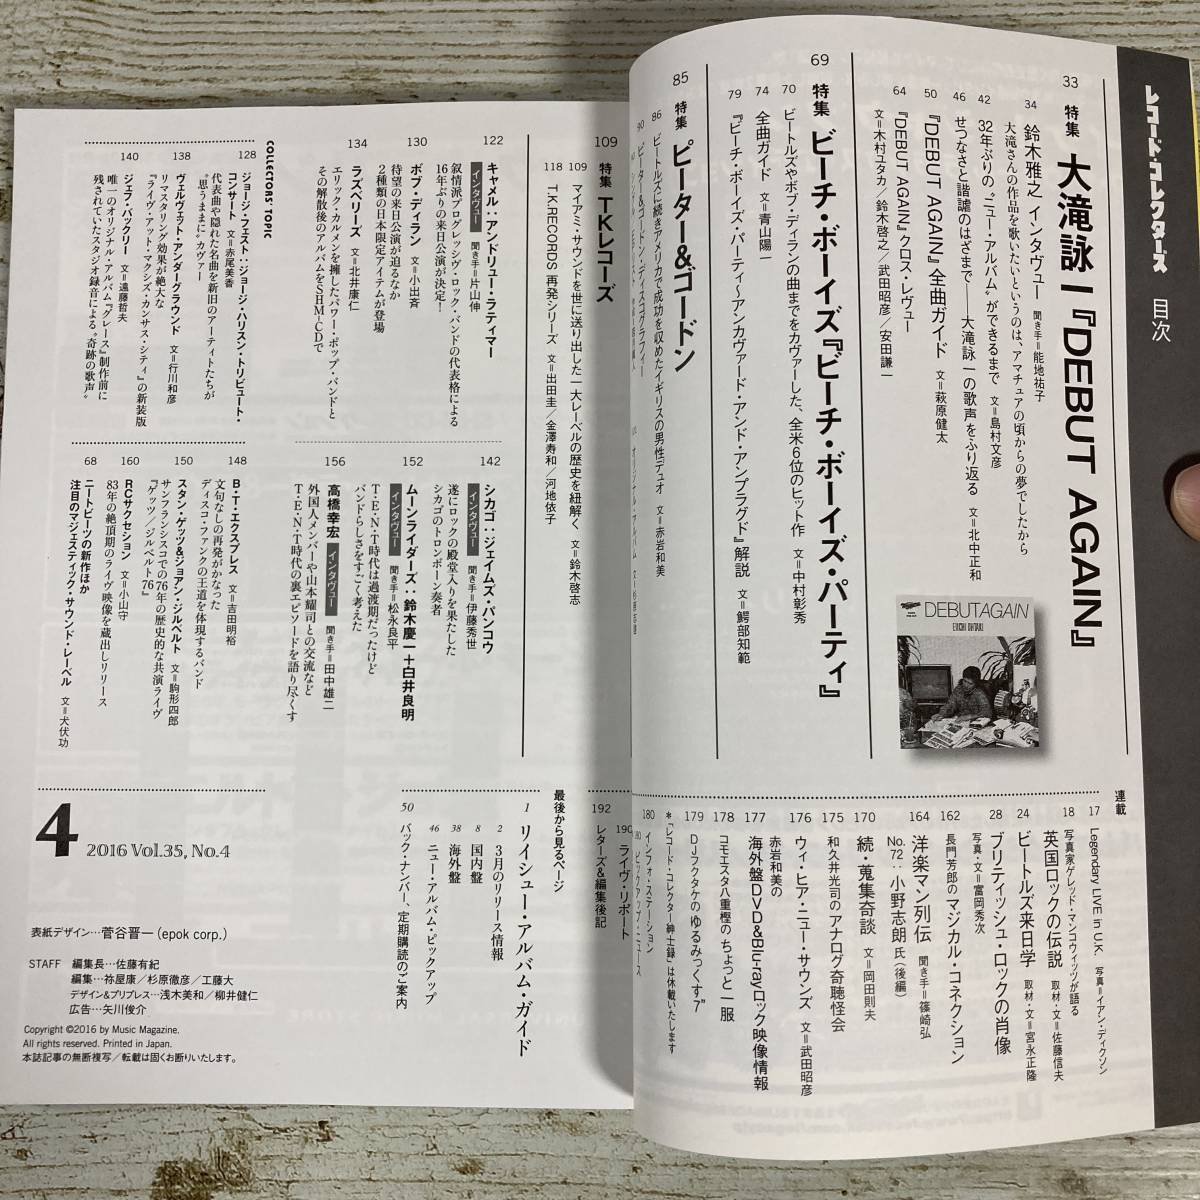 レコード・コレクターズ 目次
33 特集 大滝詠一『DEBUT AGAIN』
34 鈴木雅之 インタヴュー 聞き手=能地祐子
大滝さんの作品を歌いたいというのは、アマチュアの頃からの夢でしたから
42 32年ぶりの“ニュー・アルバム”ができるまで 文=島村文彦
46 せつなさと諧謔のはざまで——大滝詠一の歌声をふり返る 文=北中正和
50 『DEBUT AGAIN』全曲ガイド 文=萩原健太
64 『DEBUT AGAIN』クロス・レヴュー
文=木村ユタカ/鈴木啓之/武田昭彦/安田謙一
DEBUT AGAIN
EIICHI OHTAKI
69 特集 ビーチ・ボーイズ『ビーチ・ボーイズ・パーティ』
70 ビートルズやボブ・ディランの曲までをカヴァーした、全米6位のヒット作 文=中村彰秀
74 全曲ガイド 文=青山陽一
79 『ビーチ・ボーイズ・パーティ〜アンカヴァード・アンド・アンプラグド』解説 文=鰐部知範
85 特集 ピーター&ゴードン
86 ビートルズに続きアメリカで成功を収めたイギリスの男性デュオ 文=赤岩和美
90 ピーター&ゴードン・ディスコグラフィー
109 特集 TKレコーズ
109 マイアミ・サウンドを世に送り出した一大レーベルの歴史を紐解く 文=鈴木啓志
118 T.K.RECORDS 再発シリーズ 文=出田圭/金澤寿和/河地依子
122 キャメル:アンドリュー・ラティマー
インタヴュー 聞き手=片山伸
叙情派プログレッシヴ・ロック・バンドの代表格による
16年ぶりの来日公演が決定!
130 ボブ・ディラン 文=小出斉
待望の来日公演が迫るなか
2種類の日本限定アイテムが登場
134 ラズベリーズ 文=北井康仁
エリック・カルメンを擁したパワー・ポップ・バンドと
その解散後のアルバムをSHM-CDで
COLLECTORS' TOPIC
128 ジョージ・フェスト:ジョージ・ハリスン・トリビュート・
コンサート 文=赤尾美香
代表曲や隠れた名曲を新旧のアーティストたちが
“思うままに”カヴァー
138 ヴェルヴェット・アンダーグラウンド 文=行川和彦
リマスタリング効果が絶大な
『ライヴ・アット・マクシズ・カンサス・シティ』の新装版
140 ジェフ・バックリー 文=遠藤哲夫
唯一のオリジナル・アルバム『グレース』制作前に
残されていたスタジオ録音による“奇跡の歌声”
142 シカゴ:ジェイムズ・パンコウ
インタヴュー 聞き手=伊藤秀世
遂にロックの殿堂入りを果たした
シカゴのトロンボーン奏者
152 ムーンライダーズ:鈴木慶一+白井良明
インタヴュー 聞き手=松永良平
T・E・N・T時代は過渡期だったけど
バンドらしさをすごく考えた
156 高橋幸宏 インタヴュー 聞き手=田中雄二
外国人メンバーや山本耀司との交流など
T・E・N・T時代の裏エピソードを語り尽くす
148 B・T・エクスプレス 文=吉田明裕
文句なしの再発がかなった
ディスコ・ファンクの王道を体現するバンド
150 スタン・ゲッツ&ジョアン・ジルベルト 文=駒形四郎
サンフランシスコでの76年の歴史的な共演ライヴ
『ゲッツ/ジルベルト'76』
160 RCサクセション 文=小山守
83年の絶頂期のライヴ映像を蔵出しリリース
68 ニートビーツの新作ほか
注目のマジェスティック・サウンド・レーベル 文=犬伏功
連載
17 Legendary LIVE in U.K. 写真=イアン・ディクソン
18 写真家ゲレッド・マンコウィッツが語る
英国ロックの伝説 取材・文=佐藤信夫
24 ビートルズ来日学 取材・文=宮永正隆
28 ブリティッシュ・ロックの肖像
写真・文=富岡秀次
162 長門芳郎のマジカル・コネクション
164 洋楽マン列伝 聞き手=篠崎弘
No.72:小野志朗氏(後編)
170 続・蒐集奇談 文=岡田則夫
175 和久井光司のアナログ奇聴怪会
176 ウィ・ヒア・ニュー・サウンズ 文=武田昭彦
177 赤岩和美の
海外盤DVD&Blu-rayロック映像情報
178 コモエスタ八重樫の ちょっと一服
179 DJフクタケの ゆるみっくす7"
*「レコード・コレクター紳士録」は休載いたします
180 インフォ・ステーション
180 ピックアップ・ニュース
190 ライヴ・リポート
192 レターズ&編集後記
最後から見るページ
1 リイシュー・アルバム・ガイド
2 3月のリリース情報
8 国内盤
38 海外盤
46 ニュー・アルバム・ピックアップ
50 バック・ナンバー、定期購読のご案内
4 2016 Vol.35, No.4
表紙デザイン…菅谷晋一(epok corp.)
STAFF 編集長…佐藤有紀
編集…祢屋康/杉原徹彦/工藤大
デザイン&プリプレス…浅木美和/柳井健仁
広告…矢川俊介
Copyright ©2016 by Music Magazine.
All rights reserved. Printed in Japan.
本誌記事の無断複写/転載は固くお断りいたします。